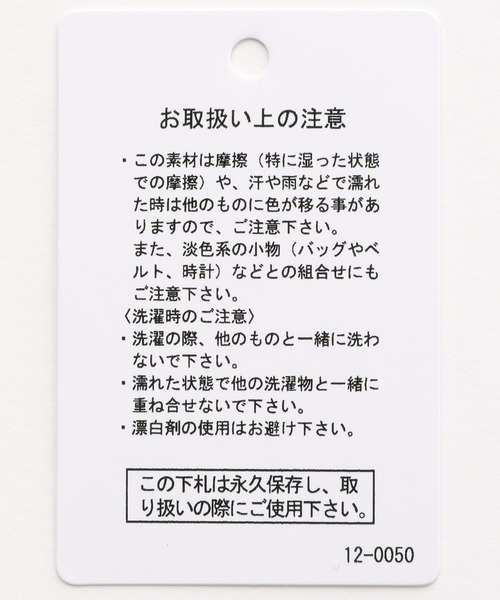 お取扱い上の注意
・この素材は摩擦（特に湿った状態
での摩擦）や、汗や雨などで濡れ
た時は他のものに色が移る事があ
りますので、ご注意下さい。
また、淡色系の小物（バッグやベ
ルト、時計）などとの組合せにも
ご注意下さい。
〈洗濯時のご注意〉
・洗濯の際、他のものと一緒に洗わ
ないで下さい。
・濡れた状態で他の洗濯物と一緒に
重ね合せないで下さい。
・漂白剤の使用はお避け下さい。
この下札は永久保存し、取
り扱いの際にご使用下さい。
12-0050